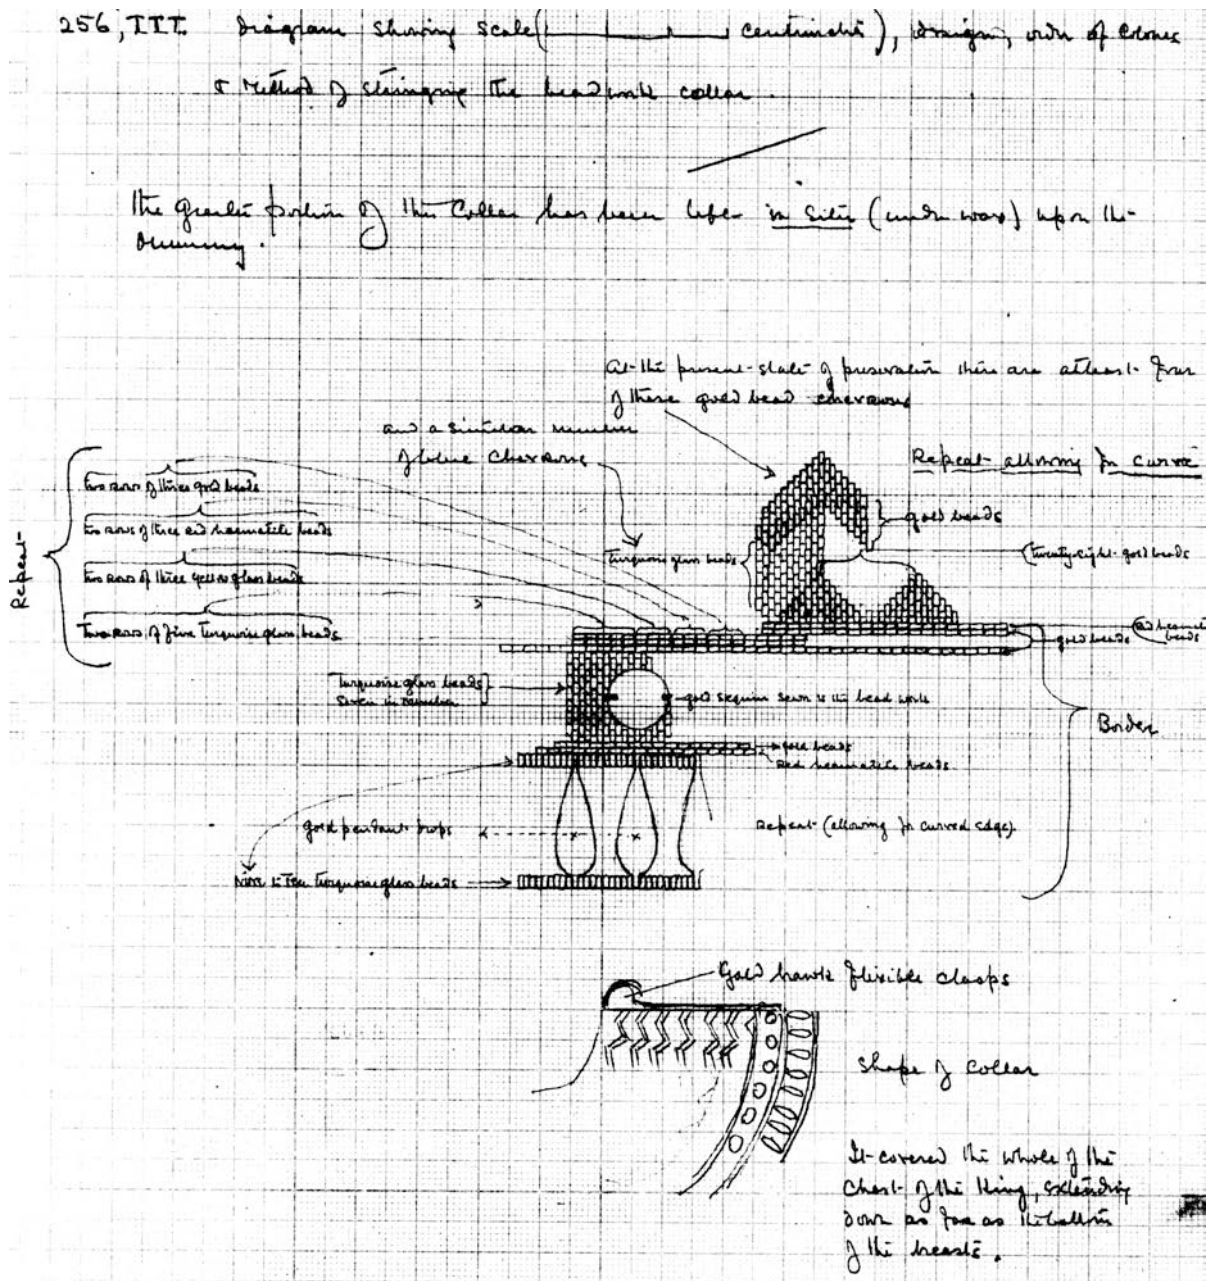 256, TTT. Diagram showing scale ( centimetres), design, order of colours
& method of stringing the beadwork collar.
The greater portion of this collar has been left in situ (under wax) upon the
mummy.
At the present state of preservation there are at least four
of these gold bead chevrons
and a similar number
of blue chevrons
Repeat allowing for curve
Repeat
two rows of three gold beads
two rows of three red haematite beads
two rows of three yellow glass beads
Two rows of five turquoise glass beads.
turquoise glass beads
gold beads
(twenty-eight gold beads
red haematite
beads
gold beads
Turquoise glass beads
seven in number
gold sequins sewn to the bead work
Border
gold beads
Red haematite beads
gold pendant drops
Repeat (allowing for curved edge).
Nine to ten turquoise glass beads
Gold hawk flexible clasps
Shape of collar
It covered the whole of the
chest of the King, extending
down as far as the bottom
of the breasts.